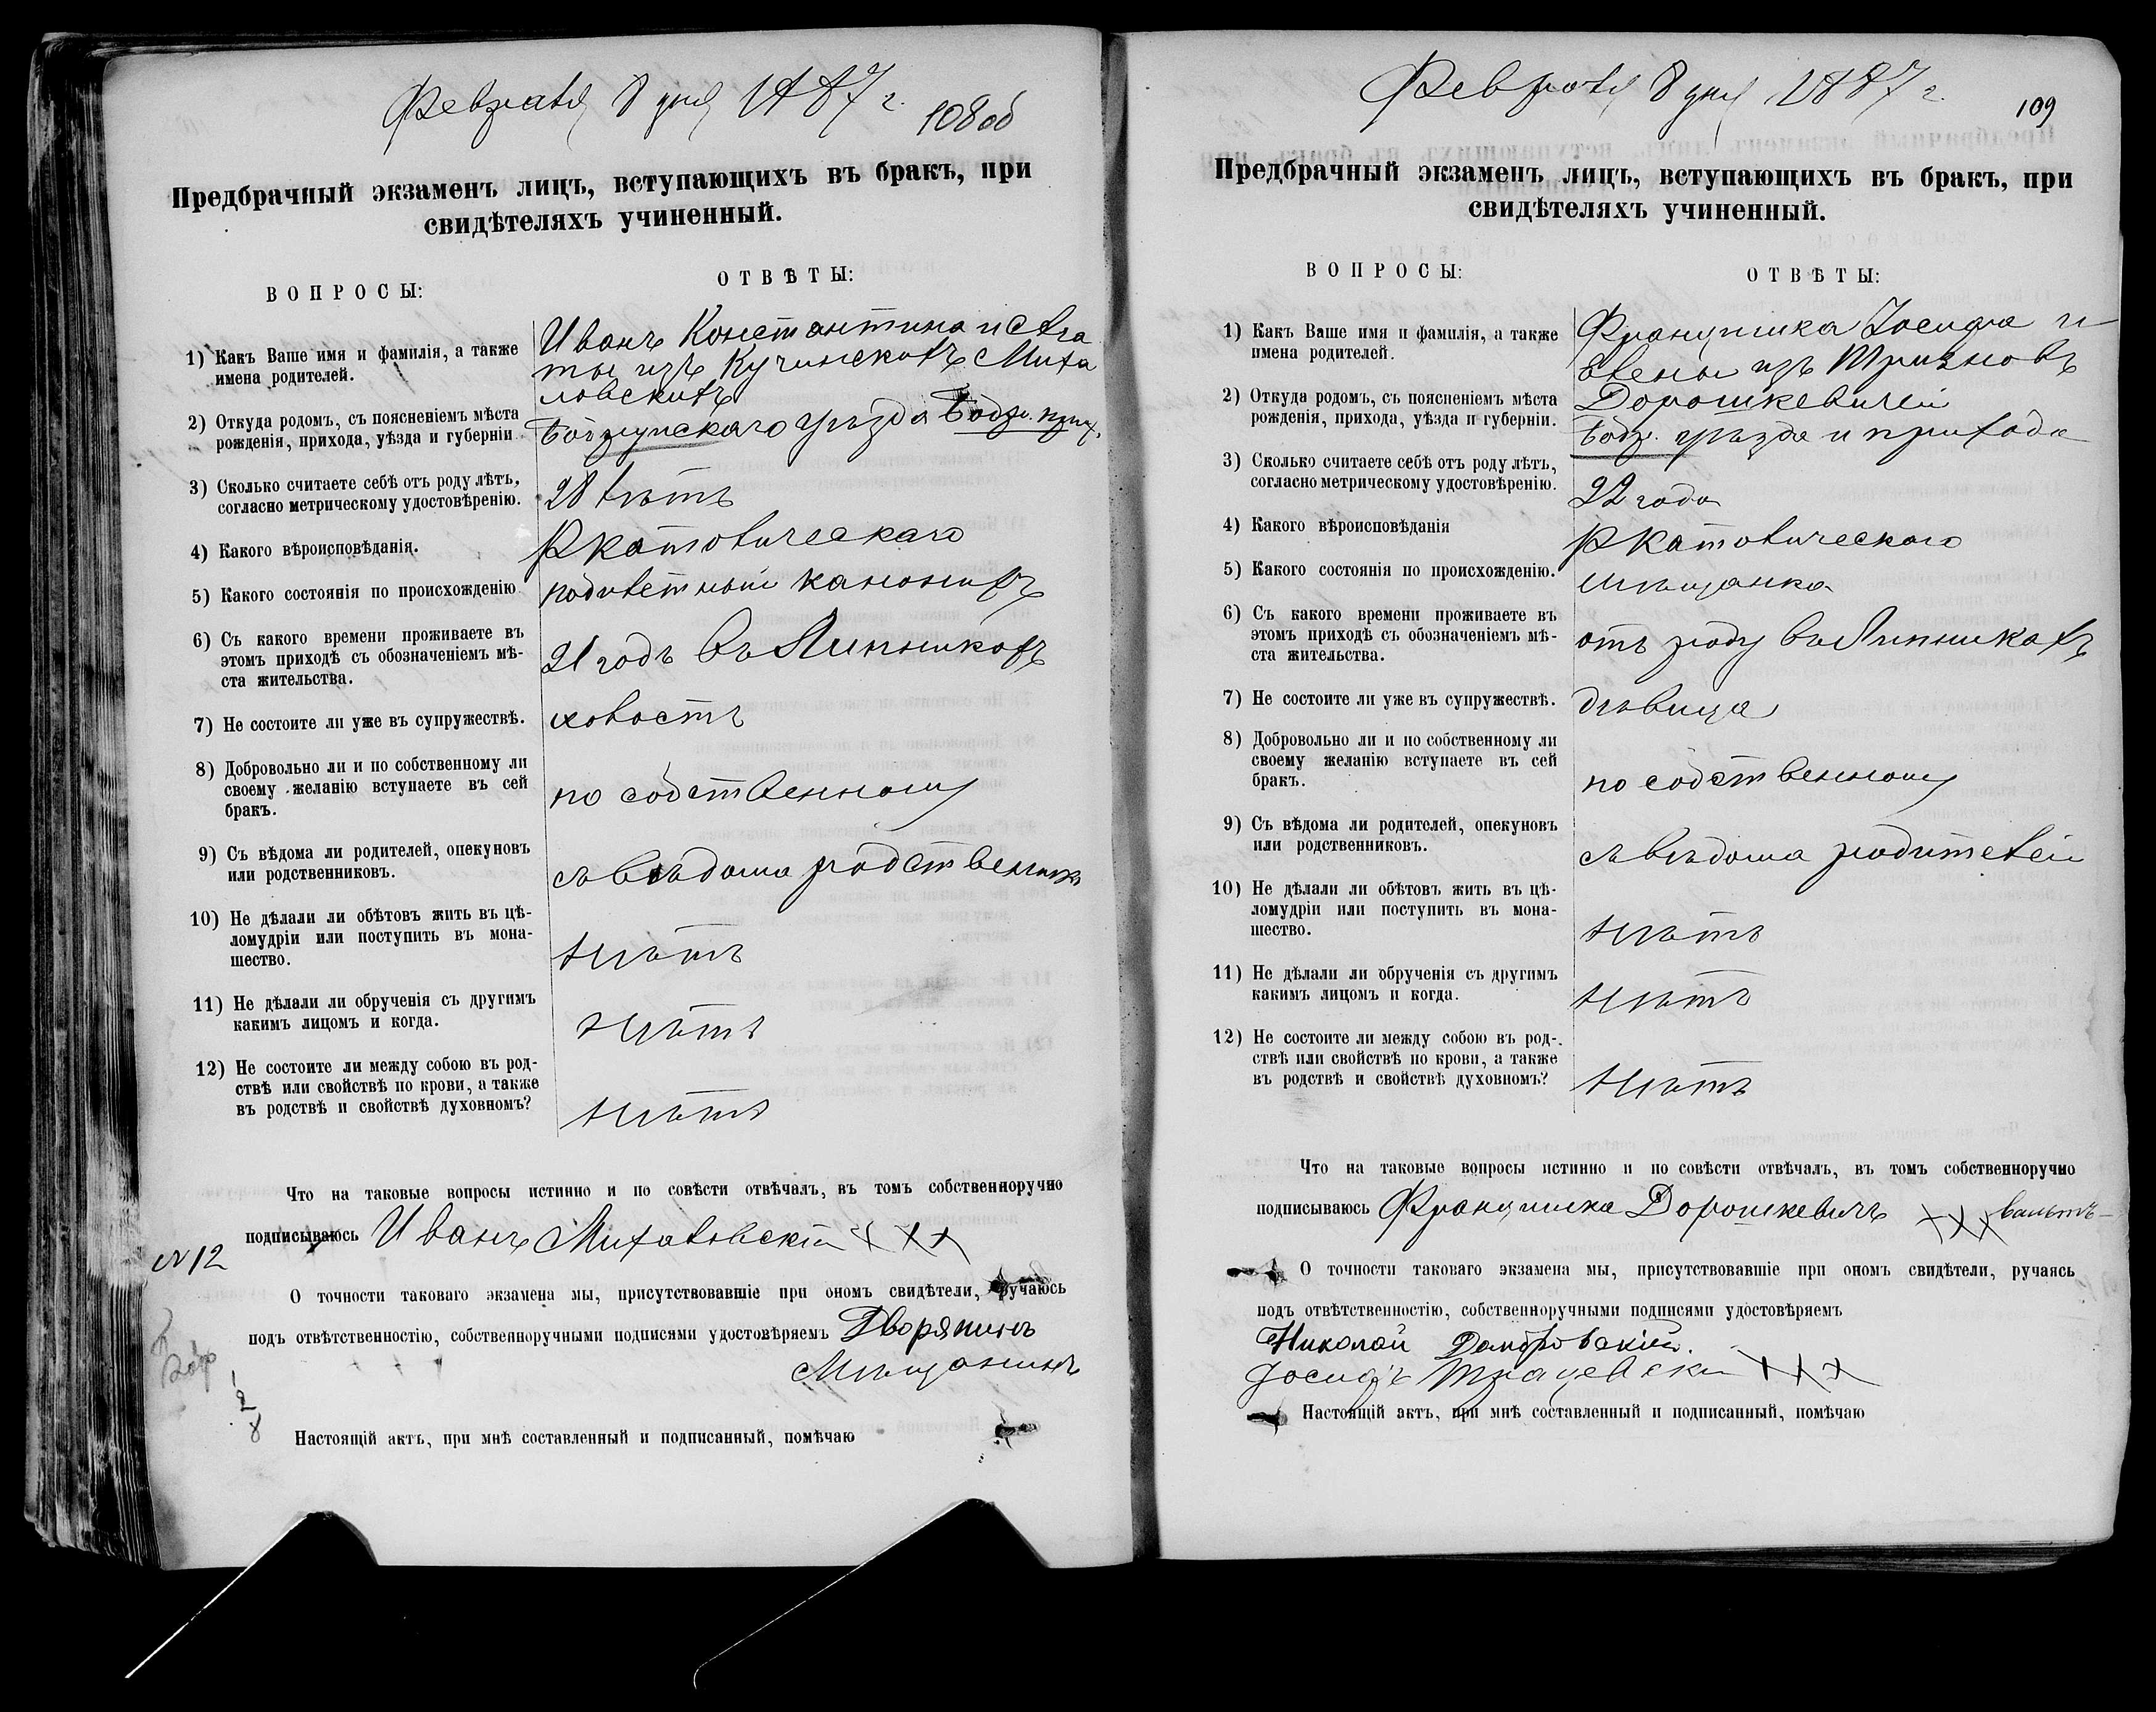 Февраля 8 дня 1887 г.
108об
Предбрачный экзаменъ лицъ, вступающихъ въ бракъ, при
свидѣтеляхъ учиненный.
ВОПРОСЫ:
ОТВѢТЫ:
1) Какъ Ваше имя и фамилія, а также
имена родителей.
Иванъ Константина и Ага
ты изъ Кучинскихъ Миха
ловскихъ
2) Откуда родомъ, съ поясненіемъ мѣста
рожденія, прихода, уѣзда и губерніи
уѣзда прих.
3) Сколько считаете себѣ отъ роду лѣтъ,
согласно метрическому удостовѣренію.
28 лѣтъ
4) Какого вѣроисповѣданія.
Р Католическаго
5) Какого состоянія по происхожденію
6) Съ какого времени проживаете въ
этомъ приходѣ съ обозначеніемъ мѣ-
ста жительства.
21 годъ въ Липникахъ
7) Не состоите ли уже въ супружествѣ.
холостъ
8) Добровольно ли и по собственному ли
своему желанію вступаете въ сей
бракъ.
по собственному
9) Съ вѣдома ли родителей, опекуновъ
или родственниковъ.
съ вѣдома
10) Не дѣлали ли обѣтовъ жить въ цѣ-
ломудріи или поступить въ мона-
шество.
нѣтъ
11) Не дѣлали ли обрученія съ другимъ
какимъ лицомъ и когда.
нѣтъ
12) Не состоите ли между собою въ род-
ствѣ или свойствѣ по крови, а также
въ родствѣ и свойствѣ духовномъ?
нѣтъ
Что на таковые вопросы истинно и по совѣсти отвѣчалъ, въ томъ собственноручно
подписываюсь Иванъ Михаловскій ХХХ
N 12
О точности таковаго экзамена мы, присутствовавшіе при ономъ свидѣтели, ручаюсь
подъ отвѣтственностію, собственноручными подписями удостовѣряемъ Дворянинъ
Мѣщанинъ
2
8
Настоящій актъ, при мнѣ составленный и подписанный, помѣчаю
Февраля 8 дня 1887 г.
109
Предбрачный экзаменъ лицъ, вступающихъ въ бракъ, при
свидѣтеляхъ учиненный.
ВОПРОСЫ:
ОТВѢТЫ:
1) Какъ Ваше имя и фамилія, а также
имена родителей.
Францишка Іосифа и
Елены изъ Тризновъ
Дорошкевичей
2) Откуда родомъ, съ поясненіемъ мѣста
рожденія, прихода, уѣзда и губерніи.
уѣзда и прихода
3) Сколько считаете себѣ отъ роду лѣтъ,
согласно метрическому удостовѣренію.
22 года
4) Какого вѣроисповѣданія
Р Католическаго
5) Какого состоянія по происхожденію.
мѣщанка
6) Съ какого времени проживаете въ
этомъ приходѣ съ обозначеніемъ мѣ-
ста жительства.
отъ роду въ Липникахъ
7) Не состоите ли уже въ супружествѣ.
дѣвица
8) Добровольно ли и по собственному ли
своему желанію вступаете въ сей
бракъ.
по собственному
9) Съ вѣдома ли родителей, опекуновъ
или родственниковъ.
съ вѣдома родителей
10) Не дѣлали ли обѣтовъ жить въ цѣ-
ломудріи или поступить въ мона-
шество.
нѣтъ
11) Не дѣлали ли обрученія съ другимъ
какимъ лицомъ и когда.
нѣтъ
12) Не состоите ли между собою въ род-
ствѣ или свойствѣ по крови, а также
въ родствѣ и свойствѣ духовномъ?
нѣтъ
Что на таковые вопросы истинно и по совѣсти отвѣчалъ, въ томъ собственноручно
подписываюсь Францишка Дорошкевичъ ХХХ
О точности таковаго экзамена мы, присутствовавшіе при ономъ свидѣтели, ручаясь
подъ отвѣтственностію, собственноручными подписями удостовѣряемъ
Николай Домбровскій.
Іосифъ ХХХ
Настоящій актъ, при мнѣ составленный и подписанный, помѣчаю